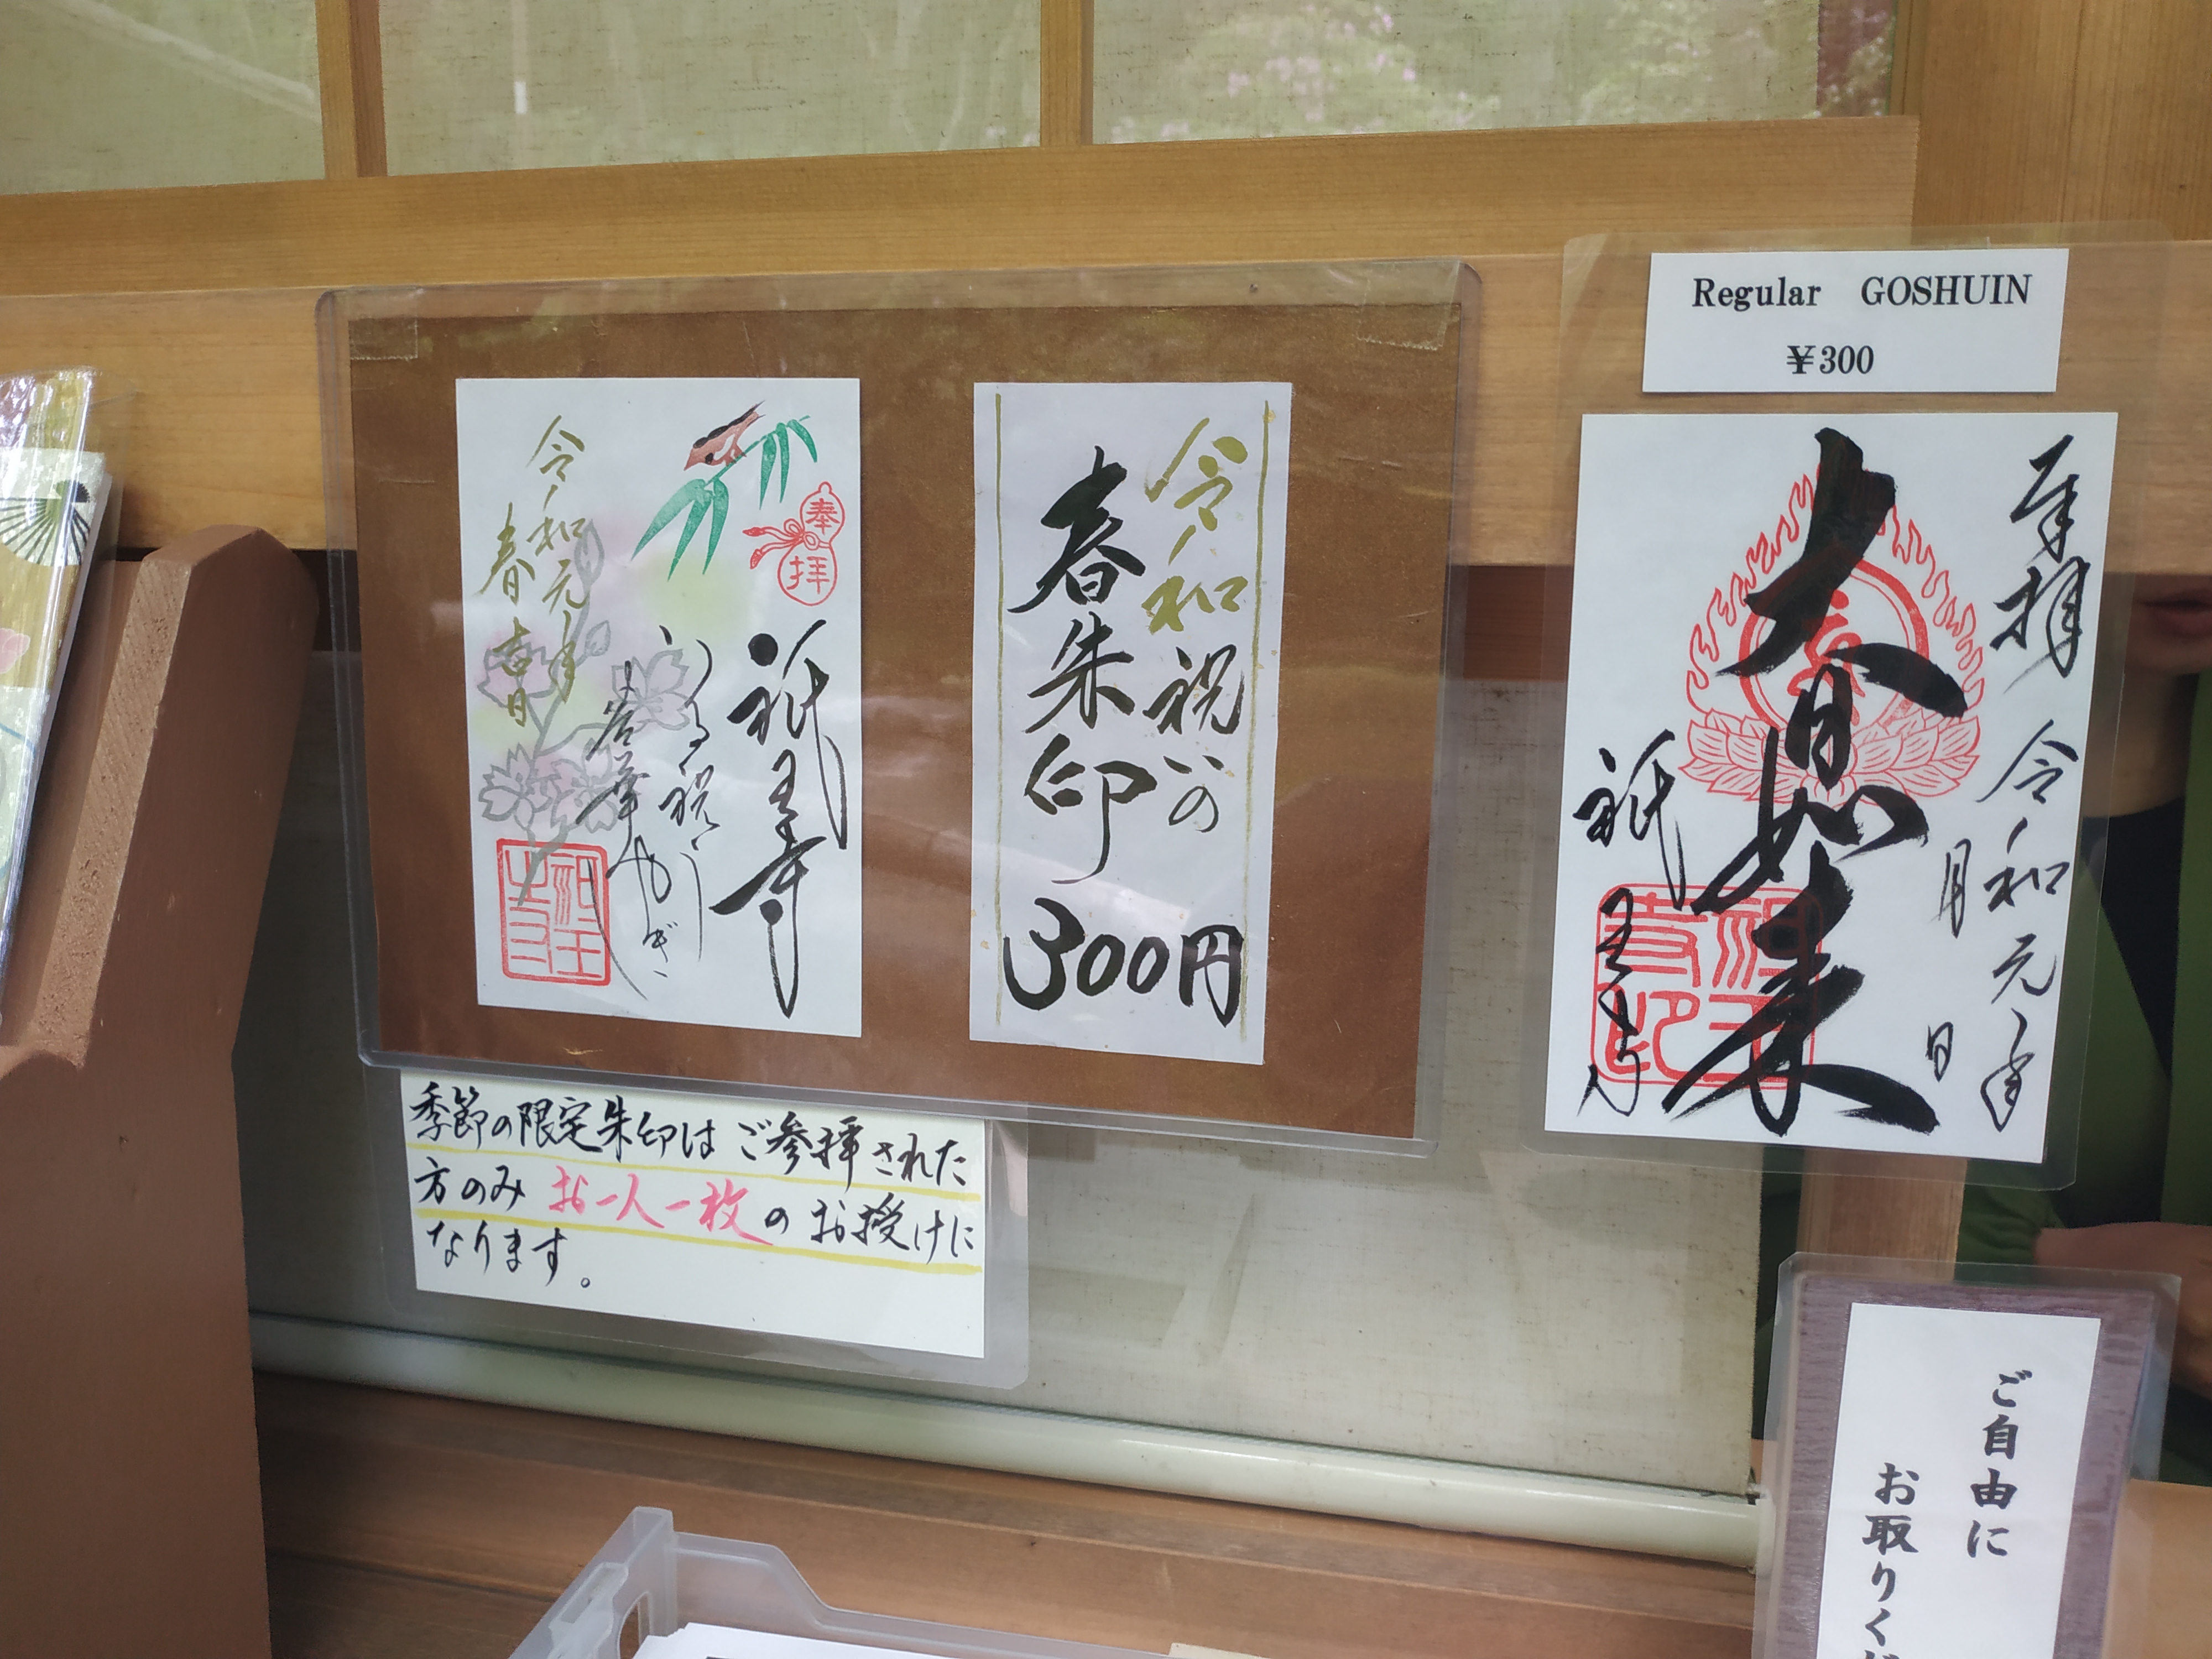 令和元年
春吉日
奉拝
祇王寺
祝
令和祝いの
春朱印
300円
季節の限定朱印は ご参拝された
方のみ お一人一枚の お授けに
なります。
Regular GOSHUIN
¥300
奉拝 令和元年
月 日
大日如来
祇王寺
ご自由に
お取りくだ